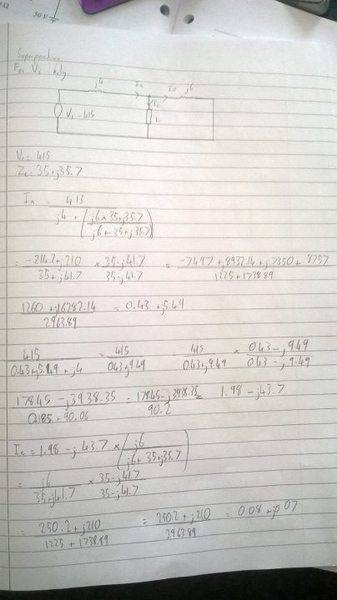 Superposition
For V₁ only
j4 Iₐ I_b j6
I_c
V₁ = 415 L
V₁ = 415
Z_c = 35 + j35.7
Iₐ = 415
j4 + (j6 × 35 + j35.7 / j6 + 35 + j35.7)
= -214.2 + j210 / 35 + j41.7 × 35 - j41.7 / 35 - j41.7 = -7497 + 8932.14 + j7350 + 8757 / 1225 + 1738.89
1260 + 16282.14 / 2963.89 = 0.43 + j5.49
415 / 0.43 + j5.49 + j4 = 415 / 0.43 + j9.49 = 415 / 0.43 + j9.49 × 0.43 - j9.49 / 0.43 - j9.49
178.45 - j3938.35 / 0.185 + 90.06 = 178.45 - j3938.35 / 90.2 = 1.98 - j43.7
I_c = 1.98 - j43.7 × (j6 / j6 + 35 + j35.7)
= j6 / 35 + j41.7 × 35 - j41.7 / 35 - j41.7
= 250.2 + j210 / 1225 + 1738.89 = 250.2 + j210 / 2963.89 = 0.08 + j0.07